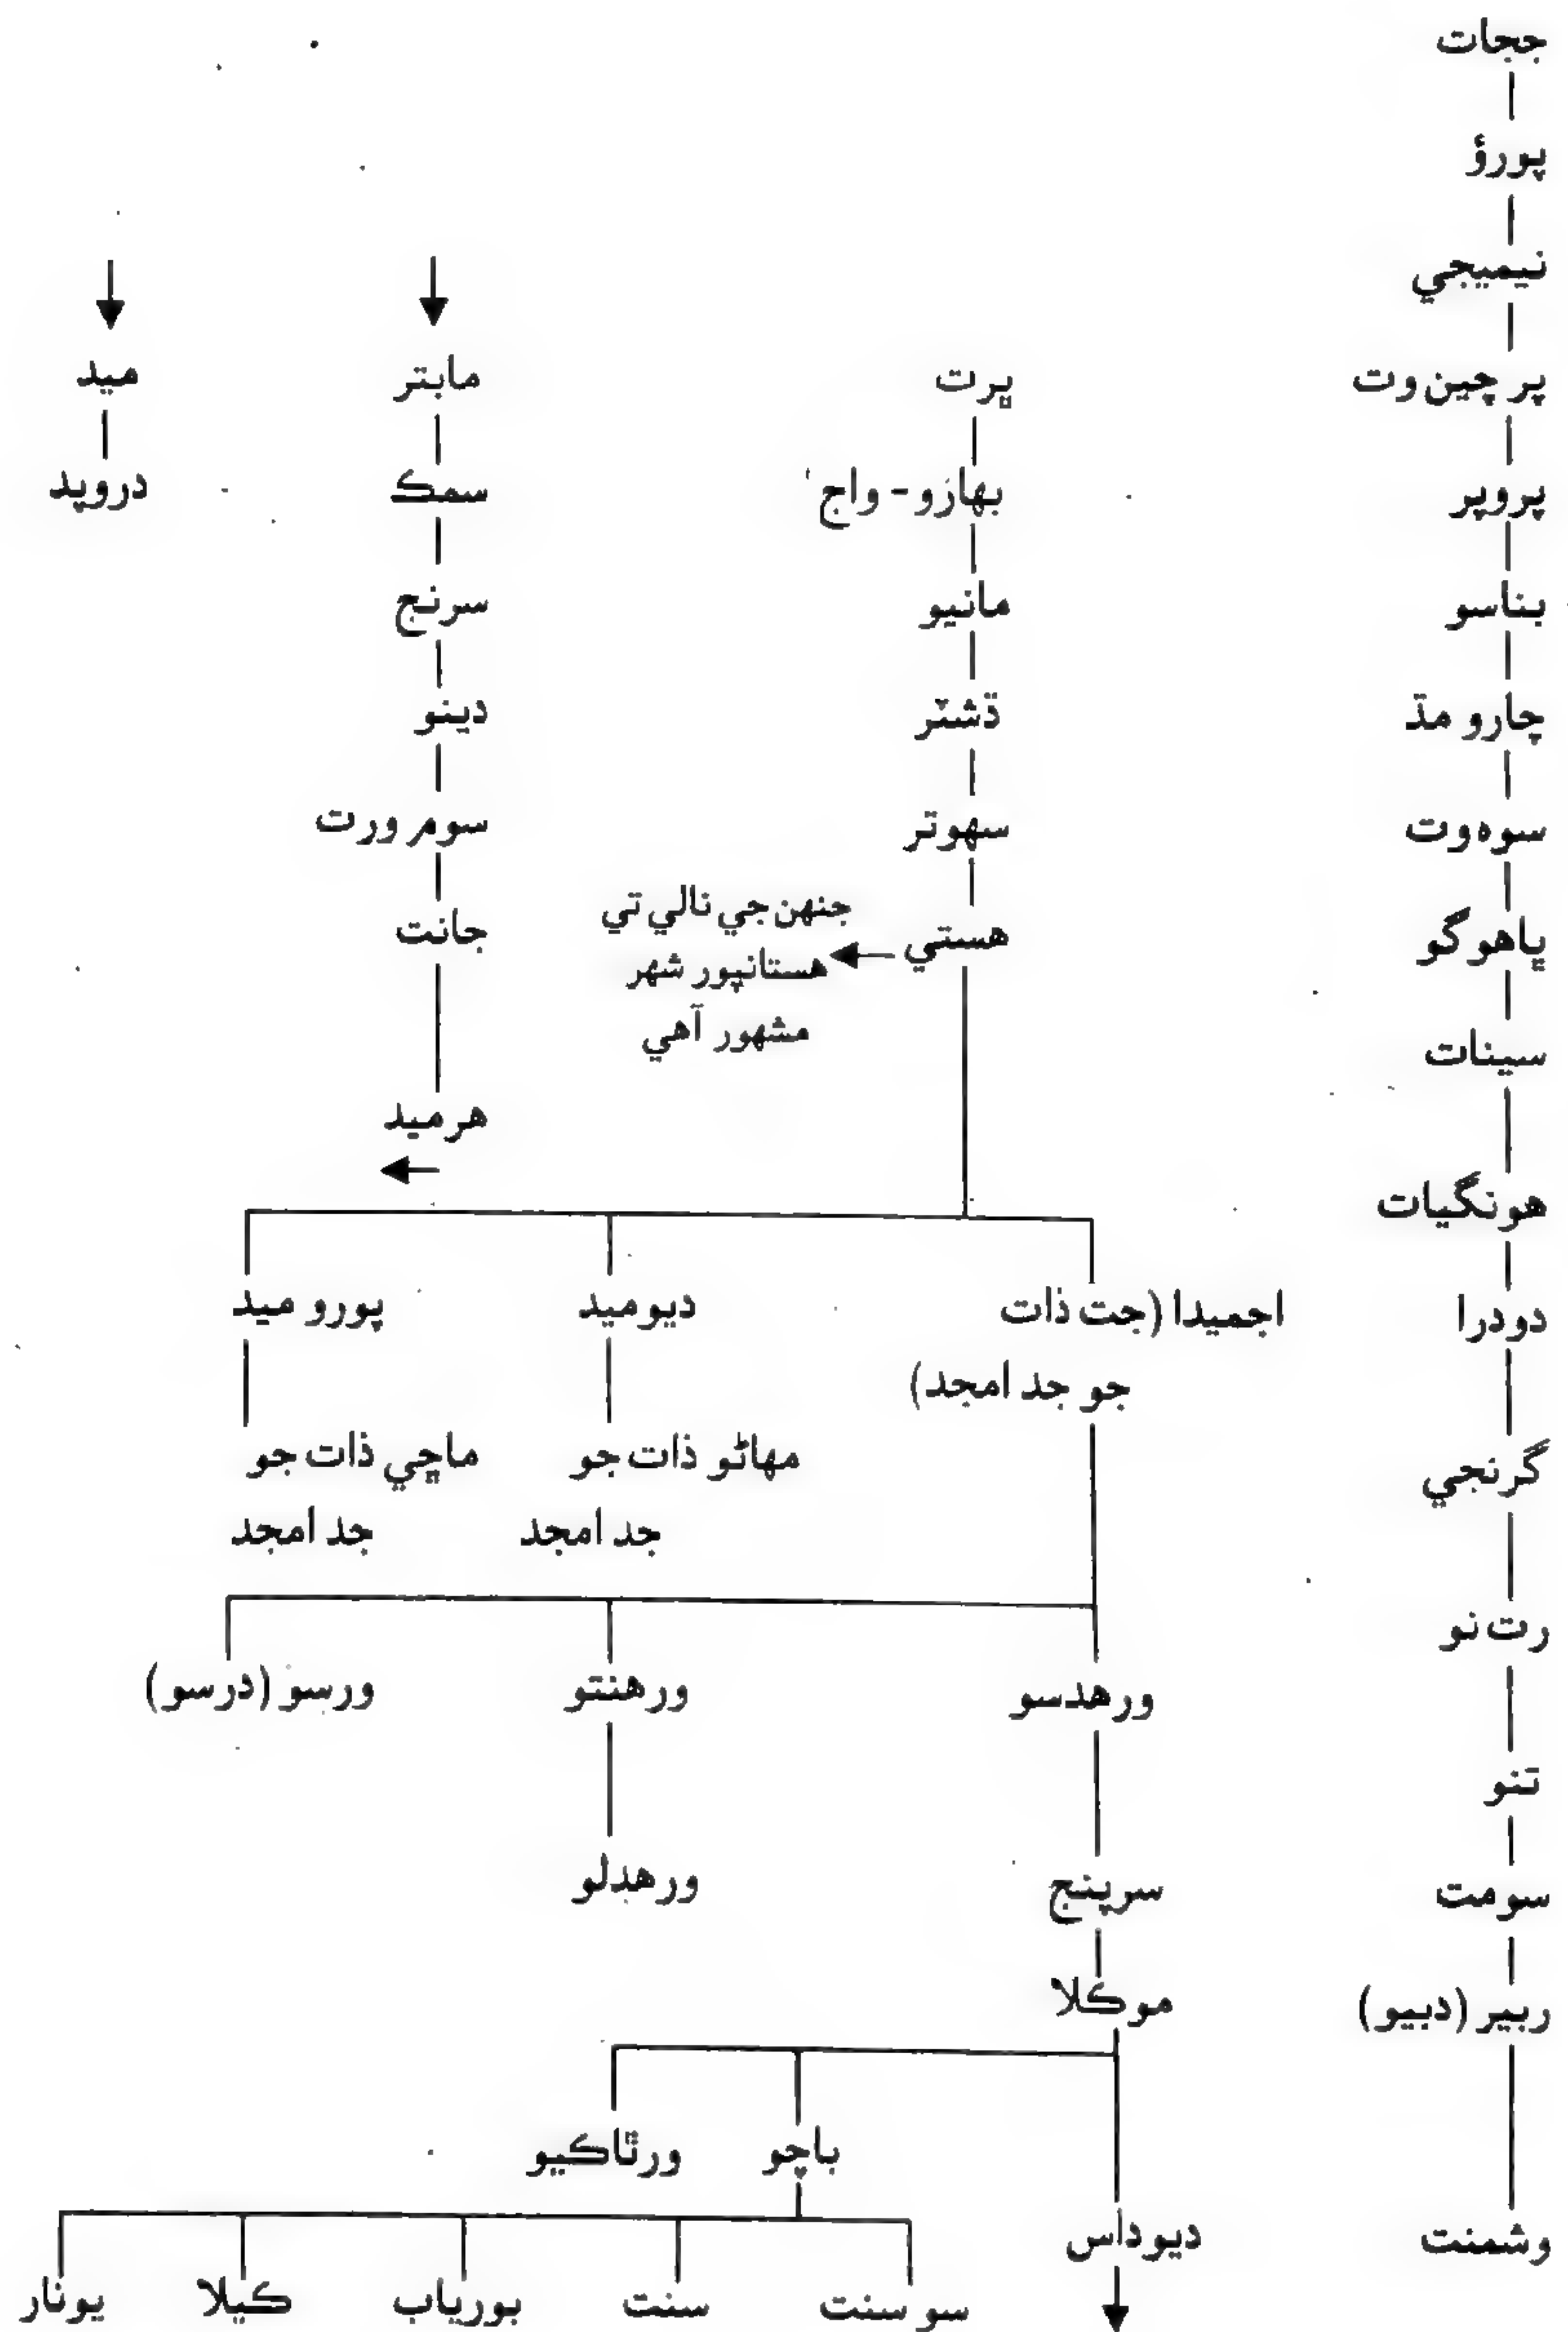 ججات
پورؤ
نيميجي
پر چين وت
پروپر
بناسو
چارو مڌ
سوه وت
ڀاهو گو
سينات
هونگيات
دودرا
گرنجي
رت نو
تنو
سومت
ربير (دبيو)
وشمنت
ڀرت
بهارو - واج
مانيو
ڌشتر
سهوتر
هستي
جنهن جي نالي تي
هستانپور شهر
مشهور آهي
اجميدا (جت ذات
جو جد امجد)
ديوميد
مهاڻو ذات جو
جد امجد
پورو ميد
ماڇي ذات جو
جد امجد
ورهدسو
ورهنتو
ورسو (درسو)
سرپنج
ورهدلو
موکلا
باچو
ورٿاکيو
ديوداس
سو سنت
سنت
بورياب
ڪيلا
يونار
مابتر
سمڪ
سرنج
دينو
سومر ورت
جانت
هرميد
ميد
درويد